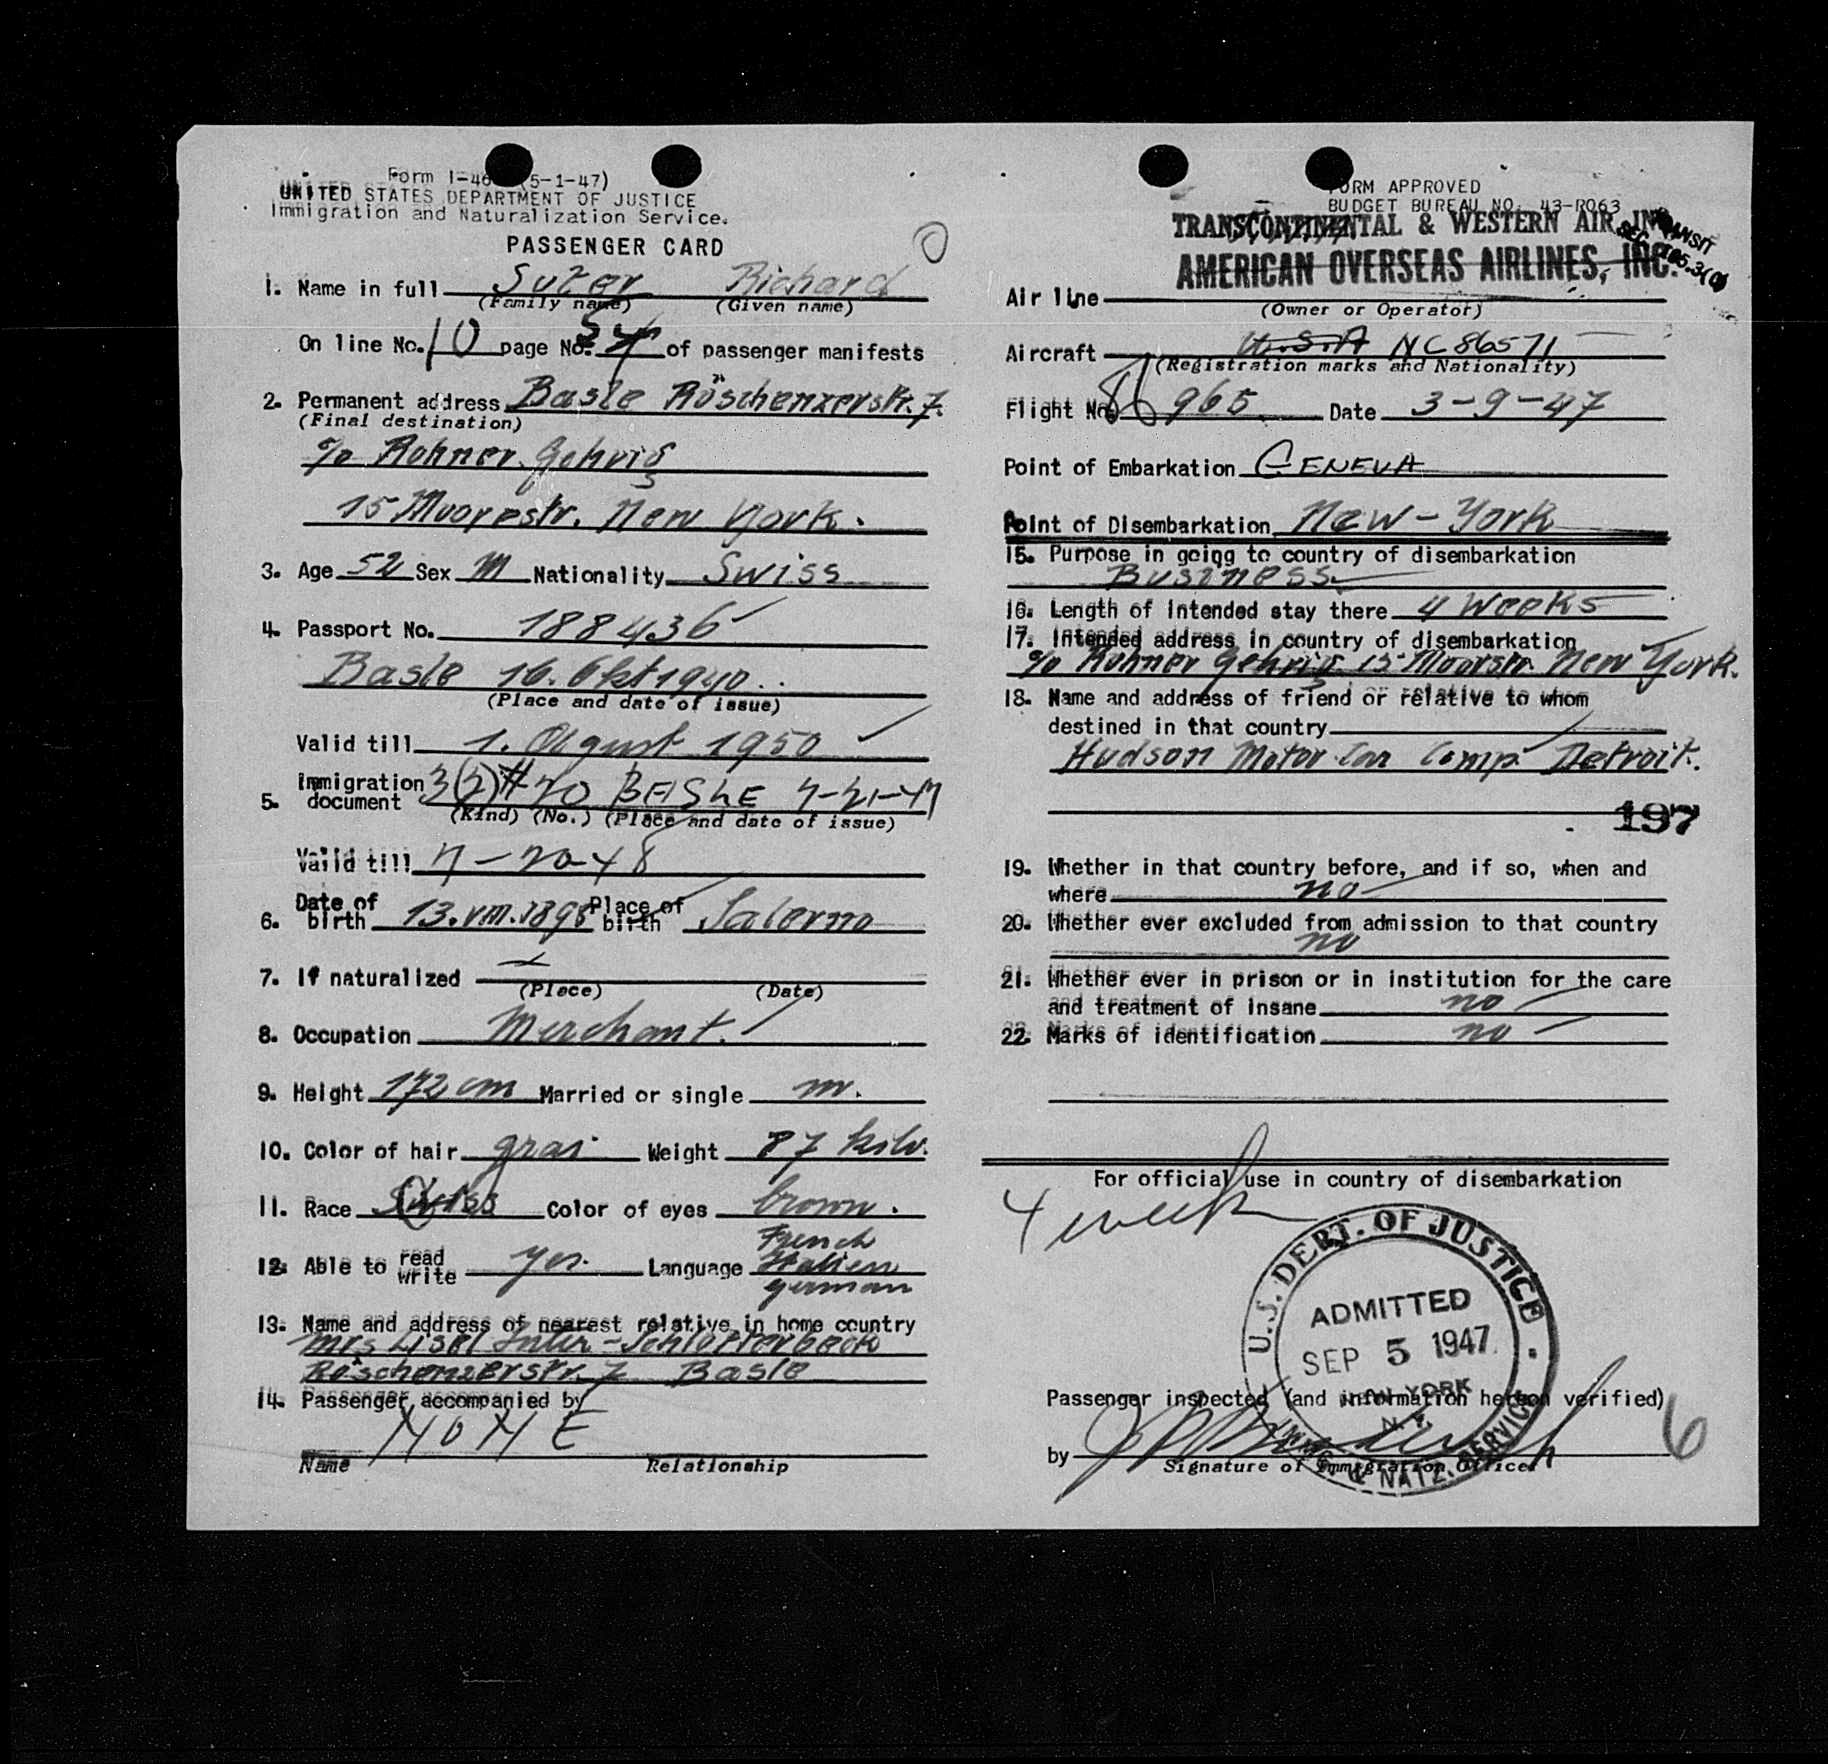 Form I-46 (5-1-47)
UNITED STATES DEPARTMENT OF JUSTICE
Immigration and Naturalization Service.
PASSENGER CARD
O
1. Name in full Suter Richard
(Family name) (Given name)
On line No. 10 page No. of passenger manifests
2. Permanent address Basle Röschenzerstr. 7.
(Final destination)
c/o Rohner Gehrig
15 Moorestr. New York.
3. Age 52 Sex M Nationality Swiss
4. Passport No. 188436
Basle 16. Okt 1940
(Place and date of issue)
Valid till 1. August 1950
5. Immigration document 3(2) #20 BASLE 7-21-47
(Kind) (No.) (Place and date of issue)
Valid till 7-20-48
6. Date of birth 13.VIII.1895 Place of birth Salerno
7. If naturalized
(Place) (Date)
8. Occupation Merchant.
9. Height 172 cm Married or single m.
10. Color of hair grai Weight 87 kilo.
11. Race Swiss Color of eyes brown.
12. Able to read write yes. Language French Italien german
13. Name and address of nearest relative in home country
Mrs Lisel Suter-Schlotterbeck
Röschenzerstr. 7 Basle
14. Passenger accompanied by
NONE
Name Relationship
FORM APPROVED
BUDGET BUREAU NO. 43-R063
TRANSCONTINENTAL & WESTERN AIR, INC.
TRANSIT
SEC. 105.3(
AMERICAN OVERSEAS AIRLINES, INC.
Air line
(Owner or Operator)
Aircraft U.S.A NC86571
(Registration marks and Nationality)
Flight No. 965 Date 3-9-47
Point of Embarkation GENEVA
Point of Disembarkation New-York
15. Purpose in going to country of disembarkation
Business
16. Length of intended stay there 4 weeks
17. Intended address in country of disembarkation
c/o Rohner Gehrig 15 Moorstr. New York.
18. Name and address of friend or relative to whom
destined in that country
Hudson Motor Car Comp Detroit.
197
19. Whether in that country before, and if so, when and
where no
20. Whether ever excluded from admission to that country
no
21. Whether ever in prison or in institution for the care
and treatment of insane no
22. Marks of identification no
For official use in country of disembarkation
4 week
U.S. DEPT. OF JUSTICE
ADMITTED
SEP 5 1947
NEW YORK
N.Y.
IMMIG. & NATZ. SERVICE
Passenger inspected (and information hereon verified)
6
by
Signature of Immigration Officer